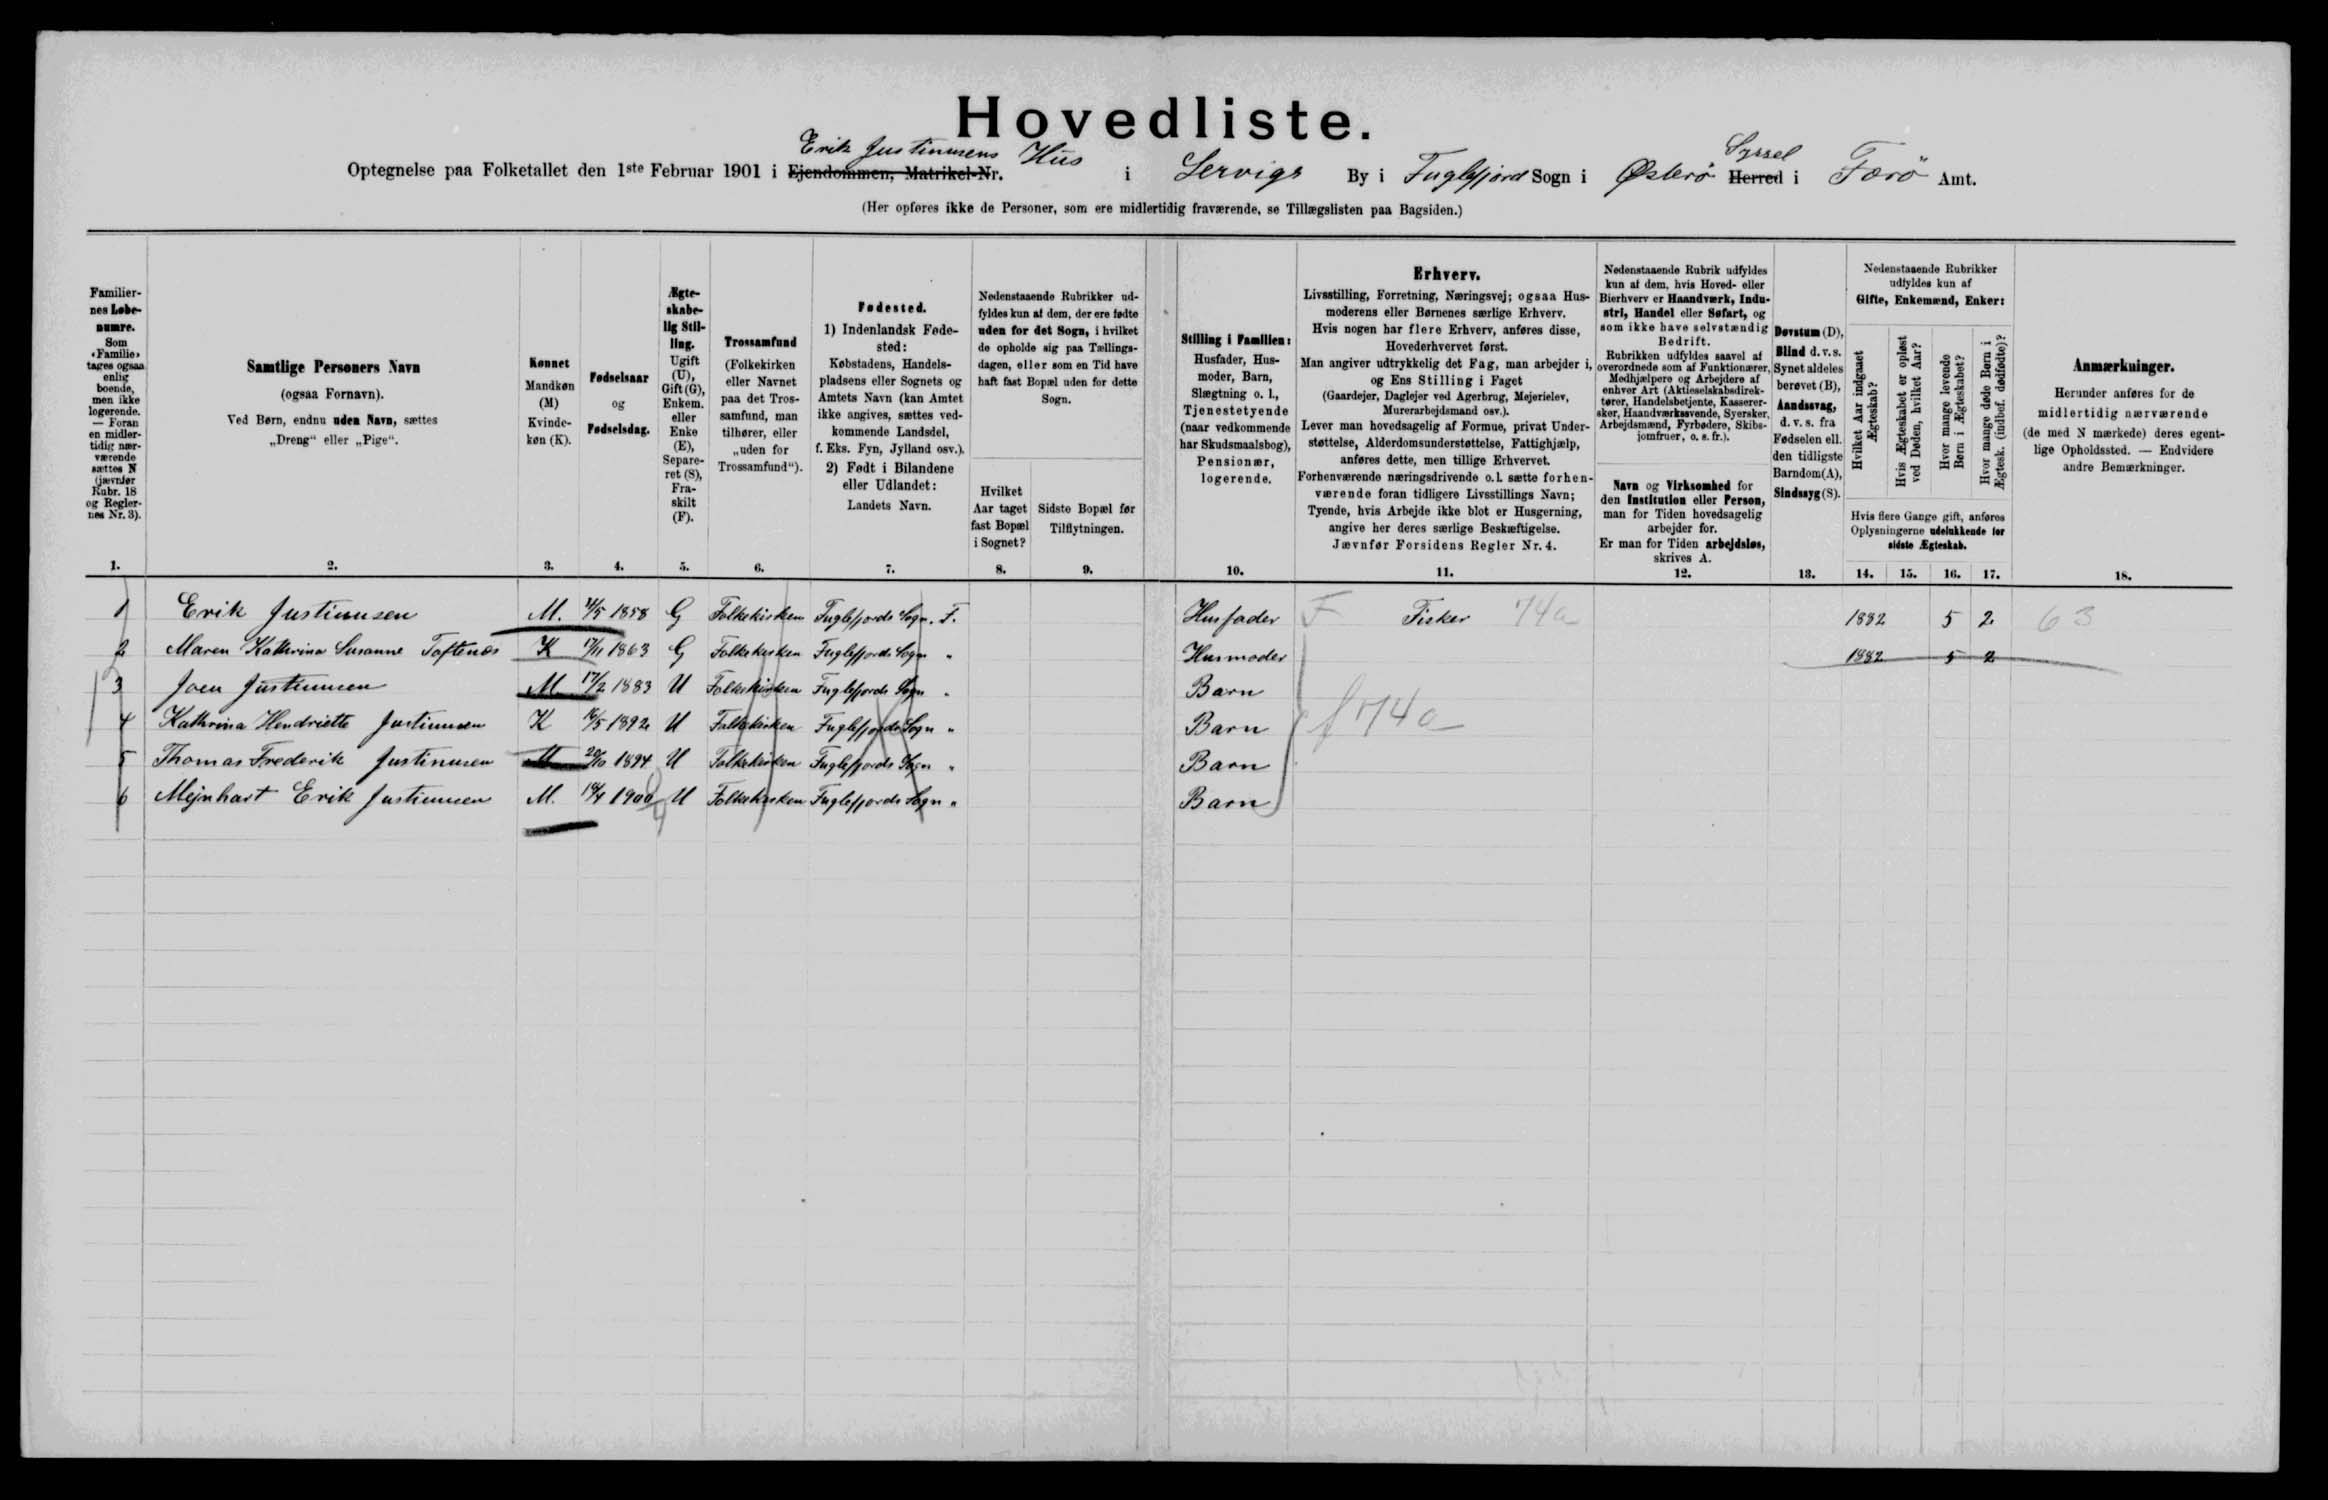 Hovedliste.
Erik Justinusens Hus
Syssel
Optegnelse paa Folketallet den 1ste Februar 1901 i Ejendommen, Matrikel-Nr. i Lervigs By i Fuglefjord Sogn i Østerö Herred i Færö Amt.
(Her opføres ikke de Personer, som ere midlertidig fraværende, se Tillægslisten paa Bagsiden.)
Familier-
nes Løbe-
numre.
Som
«Familie»
tages ogsaa
enlig
boende,
men ikke
logerende.
— Foran
en midler-
tidig nær-
værende
sættes N
(jævnfør
Rubr. 18
og Regler-
nes Nr. 3).
1.
Samtlige Personers Navn
(ogsaa Fornavn).
Ved Børn, endnu uden Navn, sættes
„Dreng“ eller „Pige“.
2.
Kønnet
Mandkøn
(M)
Kvinde-
køn (K).
3.
Fødselsaar
og
Fødselsdag.
4.
Ægte-
skabe-
lig Stil-
ling.
Ugift
(U),
Gift (G),
Enkem.
eller
Enke
(E),
Separe-
ret (S),
Fra-
skilt
(F).
5.
Trossamfund
(Folkekirken
eller Navnet
paa det Tros-
samfund, man
tilhører, eller
„uden for
Trossamfund“).
6.
Fødested.
1) Indenlandsk Føde-
sted:
Købstadens, Handels-
pladsens eller Sognets og
Amtets Navn (kan Amtet
ikke angives, sættes ved-
kommende Landsdel,
f. Eks. Fyn, Jylland osv.).
2) Født i Bilandene
eller Udlandet:
Landets Navn.
7.
Nedenstaaende Rubrikker ud-
fyldes kun af dem, der ere fødte
uden for det Sogn, i hvilket
de opholde sig paa Tællings-
dagen, eller som en Tid have
haft fast Bopæl uden for dette
Sogn.
Hvilket
Aar taget
fast Bopæl
i Sognet?
8.
Sidste Bopæl før
Tilflytningen.
9.
Stilling i Familien:
Husfader, Hus-
moder, Barn,
Slægtning o. l.,
Tjenestetyende
(naar vedkommende
har Skudsmaalsbog),
Pensionær,
logerende.
10.
Erhverv.
Livsstilling, Forretning, Næringsvej; ogsaa Hus-
moderens eller Børnenes særlige Erhverv.
Hvis nogen har flere Erhverv, anføres disse,
Hovederhvervet først.
Man angiver udtrykkelig det Fag, man arbejder i,
og Ens Stilling i Faget
(Gaardejer, Daglejer ved Agerbrug, Mejerielev,
Murerarbejdsmand osv.).
Lever man hovedsagelig af Formue, privat Under-
støttelse, Alderdomsunderstøttelse, Fattighjælp,
anføres dette, men tillige Erhvervet.
Forhenværende næringsdrivende o.l. sætte forhen-
værende foran tidligere Livsstillings Navn;
Tyende, hvis Arbejde ikke blot er Husgerning,
angive her deres særlige Beskæftigelse.
Jævnfør Forsidens Regler Nr. 4.
11.
Nedenstaaende Rubrik udfyldes
kun af dem, hvis Hoved- eller
Bierhverv er Haandværk, Indu-
stri, Handel eller Søfart, og
som ikke have selvstændig
Bedrift.
Rubrikken udfyldes saavel af
overordnede som af Funktionærer,
Medhjælpere og Arbejdere af
enhver Art (Aktieselskabsdirek-
tører, Handelsbetjente, Kasserer-
sker, Haandværkssvende, Syersker,
Arbejdsmænd, Fyrbødere, Skibs-
jomfruer, o. s. fr.).
Navn og Virksomhed for
den Institution eller Person,
man for Tiden hovedsagelig
arbejder for.
Er man for Tiden arbejdsløs,
skrives A.
12.
Døvstum (D),
Blind d. v. s.
Synet aldeles
berøvet (B),
Aandssvag,
d. v. s. fra
Fødselen ell.
den tidligste
Barndom (A),
Sindssyg (S).
13.
Nedenstaaende Rubrikker
udfyldes kun af
Gifte, Enkemænd, Enker:
Hvilket Aar indgaaet
Ægteskab?
Hvis Ægteskabet er opløst
ved Døden, hvilket Aar?
Hvor mange levende
Børn i Ægteskabet?
Hvor mange døde Børn i
Ægtesk. (indbef. dødfødte)?
Hvis flere Gange gift, anføres
Oplysningerne udelukkende for
sidste Ægteskab.
14. 15. 16. 17.
Anmærkninger.
Herunder anføres for de
midlertidig nærværende
(de med N mærkede) deres egent-
lige Opholdssted. — Endvidere
andre Bemærkninger.
18.
1 Erik Justinusen M. 1858 G Folkekirken Fuglefjords Sogn. F. Husfader F Fisker 74a 1882 5 2 63
2 Maren Kathrina Susanne Toftenæs K 17/11 1863 G Folkekirken Fuglefjords Sogn " Husmoder 1882 5 2
3 Joen Justinusen M 17/2 1883 U Folkekirken Fuglefjords Sogn " Barn
4 Kathrina Hendriette Justinusen K 16/5 1892 U Folkekirken Fuglefjords Sogn " Barn f 74a
5 Thomas Frederik Justinusen M 20/10 1894 U Folkekirken Fuglefjords Sogn " Barn
6 Mejnhart Erik Justinusen M. 1900 U Folkekirken Fuglefjords Sogn " Barn